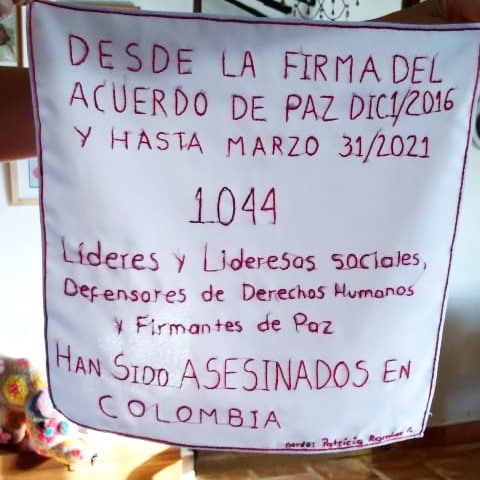 DESDE LA FIRMA DEL
ACUERDO DE PAZ DIC1/2016
Y HASTA MARZO 31/2021
1.044
Líderes y Lideresas sociales,
Defensores de Derechos Humanos
y Firmantes de Paz
HAN SIDO ASESINADOS EN
COLOMBIA
Patricia